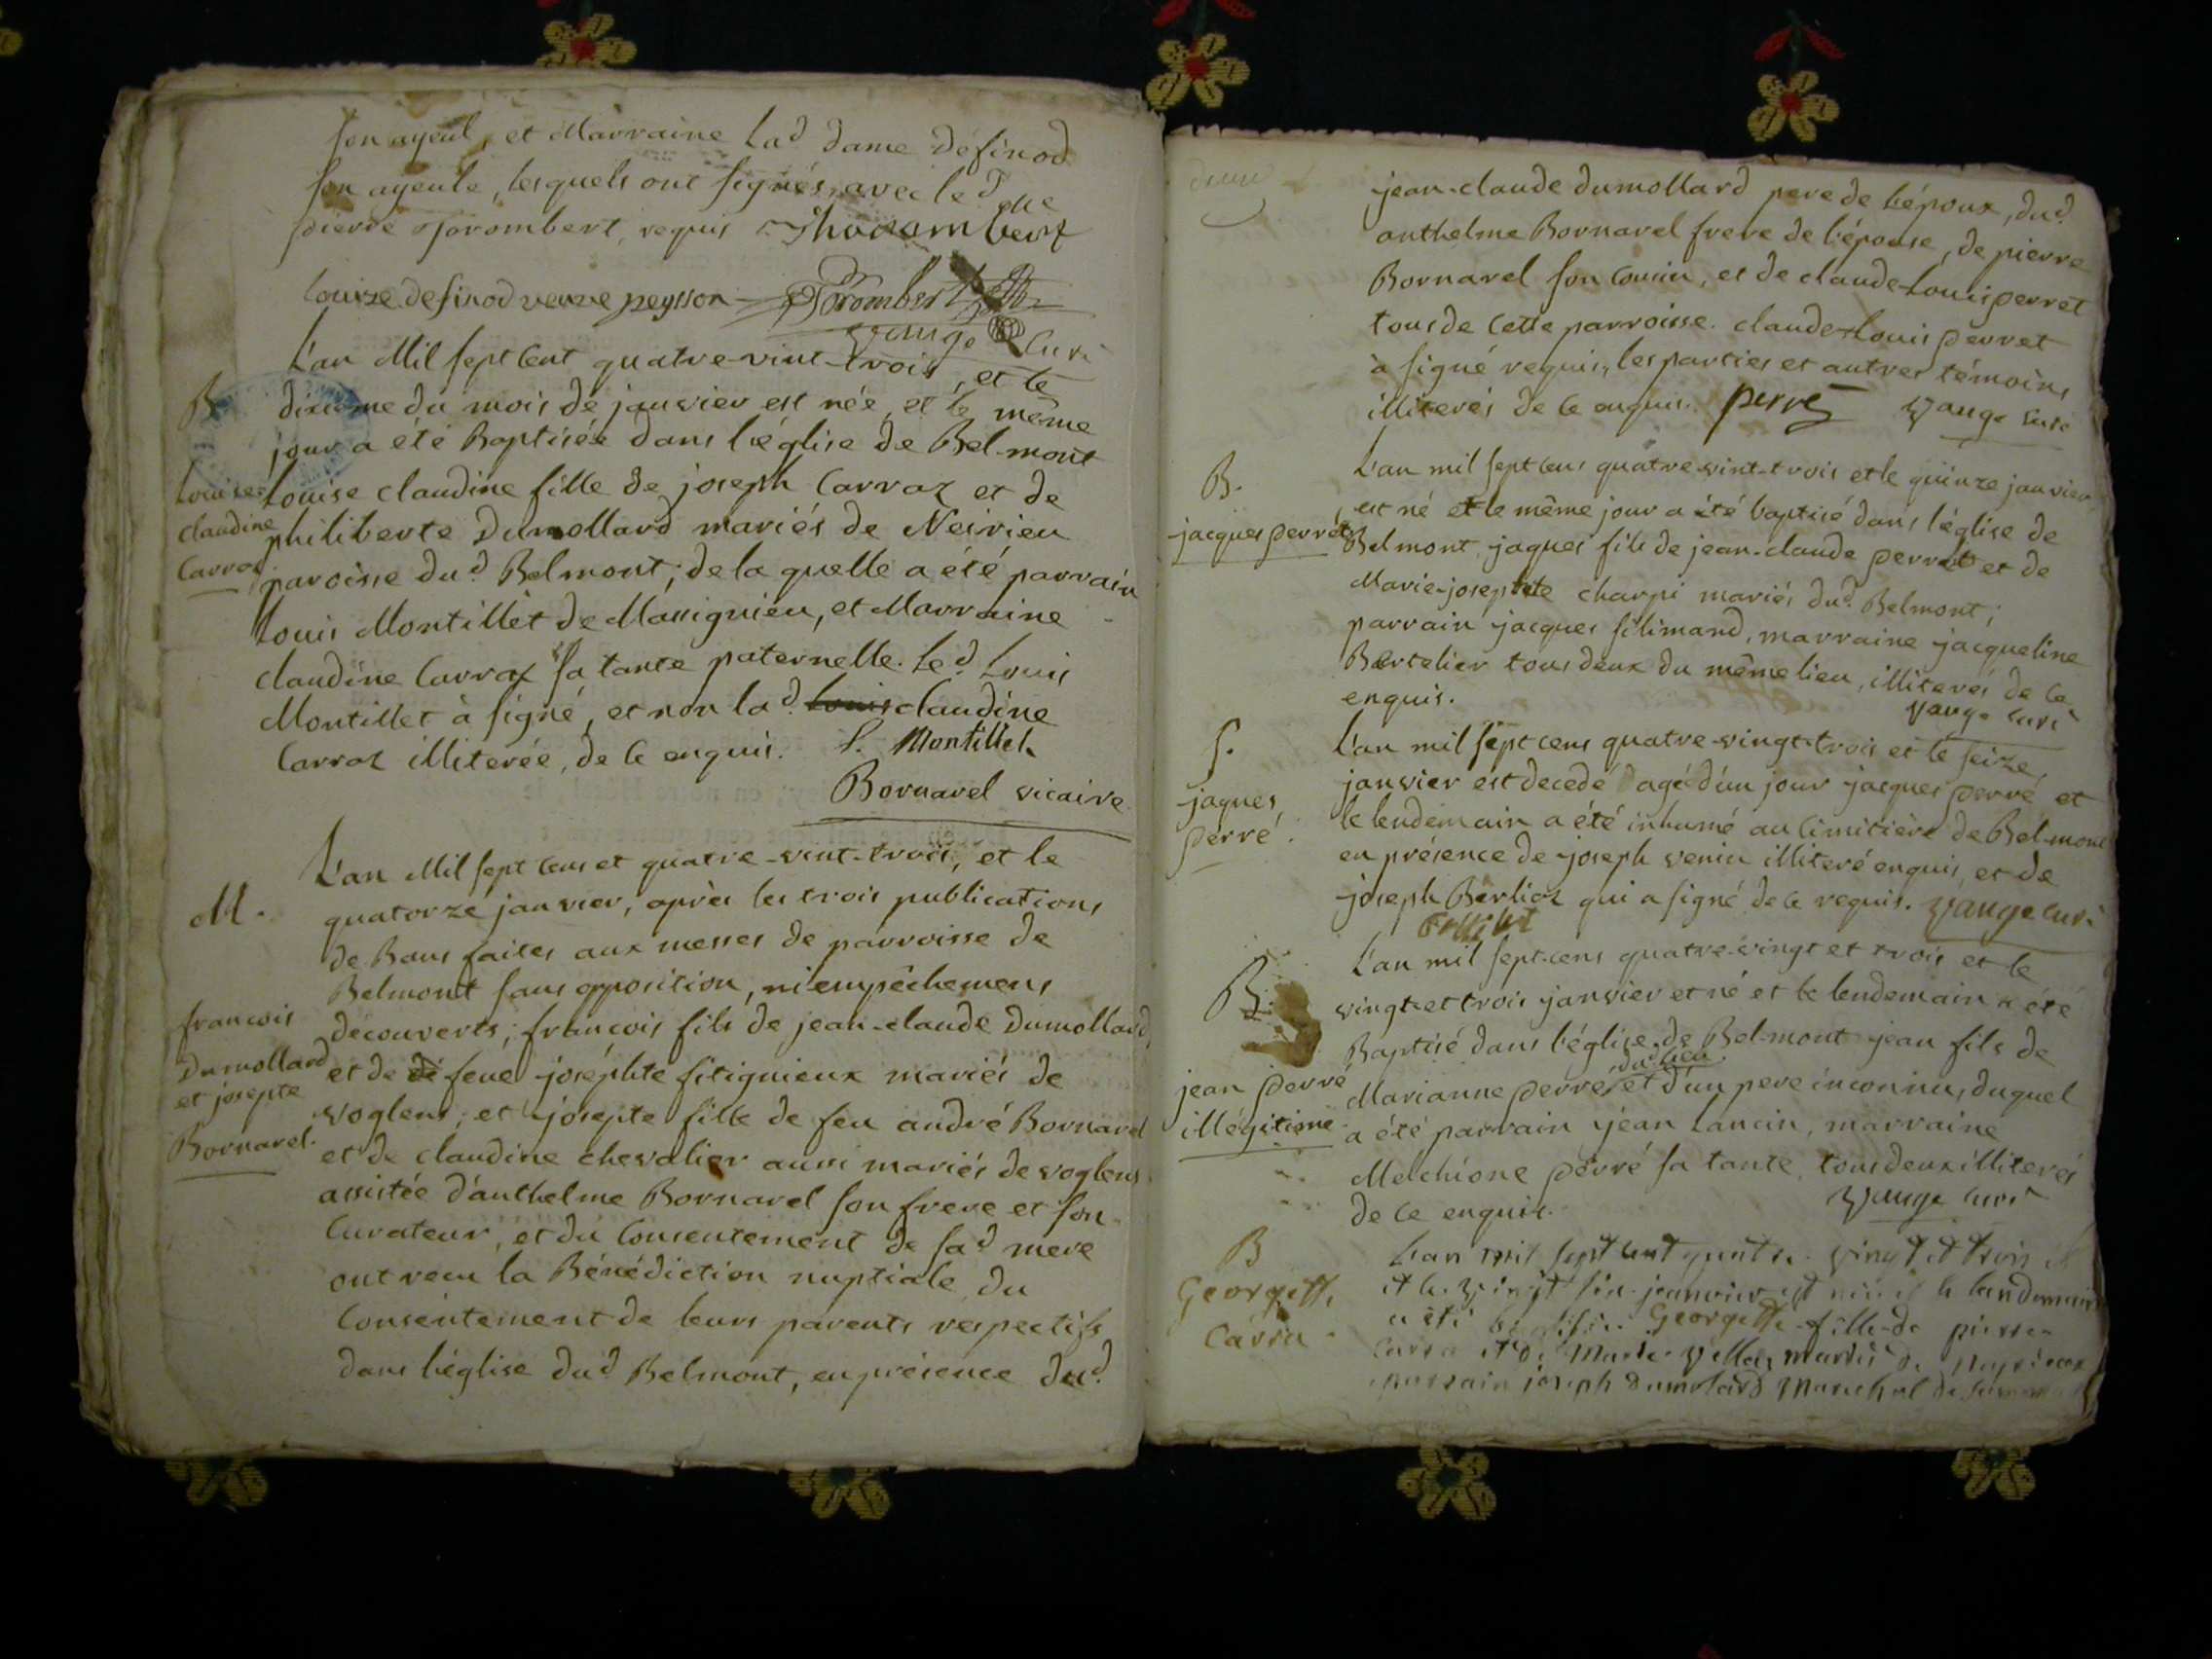 son ayeul, et Marraine lad dame définod
son ayeule, lesquels ont signés, avec led
pierre Torombert, requis Thorombert
Louize definod veuve peysson Torombert
Vauge Curé
B
L'an Mil sept Cent quatre-vint-trois, et le
dixieme du mois de janvier est née, et le même
jour a été Baptisée dans l'église de Bel-mont
Louise
claudine
Carraz
Louise claudine fille de joseph Carraz et de
philiberte Dumollard mariés de Neirieu
paroisse dud Belmont; de la quelle a été parrain
Louis Montillet de Massignieu, et Marraine
claudine Carraz sa tante paternelle. led Louis
Montillet à signé, et non lad. Louis claudine
Carraz illiterée, de ce enquis. L. Montillet
Bornarel vicaire
M.
L'an Mil sept cens et quatre-vint-trois, et le
quatorze janvier, après les trois publications
de Bans faites aux messes de parroisse de
Belmont sans opposition, ni empêchemens
francois
Dumollard
et josepte
Bornarel.
découverts; françois fils de jean-claude Dumollard
et de de feue joséphte fitignieux mariés de
voglens; et josepte fille de feu andré Bornarel
et de claudine chevalier aussi mariés de voglens
assistée d'anthelme Bornarel son frere et son
Curateur, et du Consentement de sad mere
ont recu la Bénédiction nuptiale du
Consentement de leurs parents respectifs
dans l'église dud Belmont, en présence dud.
jean-claude dumollard pere de l'époux, dud.
anthelme Bornarel frere de l'épouse, de pierre
Bornarel son Cousin, et de claude-Louis perret
tous de Cette parroisse. claude-Louis perret
à signé requis, les parties et autres témoins
illiterés de ce enquis. perret Vauge Curé
B.
jacques perret
L'an mil sept cens quatre-vint-trois et le quinze janvier
est né et le même jour a été baptisé dans l'église de
Belmont jaques fils de jean-claude perret et de
Marie-josephte charpi mariés dud. Belmont;
parrain jacques filimand, marraine jacqueline
Bertelier tous deux du même lieu, illiterés de ce
enquis. Vauge Curé
S.
jaques
perré.
L'an mil sept cens quatre-vingt-trois et le seize
janvier est decedé agé d'un jour jacques perré et
le lendemain a été inhumé au cimitière de Bel-mont
en présence de joseph venin illiteré enquis, et de
joseph Berlioz qui a signé de ce requis. Vauge Curé
B.
jean perré
illégitime
L'an mil sept-cens quatre-vingt et trois et le
vingt-et trois janvier et né et le lendemain a été
Baptisé dans l'église de Bel-mont jean fils de
Marianne perré dud. lieu. et d'un pere inconnu, duquel
a été parrain jean Lancin, marraine
Melchione perré sa tante tous deux illiterés
de ce enquis. Vauge Curé
B
Georgette
Carra
L'an mil sept cent quatre vingt et trois
et le vingt six janvier est née et le lendemain
a été baptisée Georgette fille de pierre
Carra et de Marie Villez mariés de
parrain joseph dumolard Marechal de